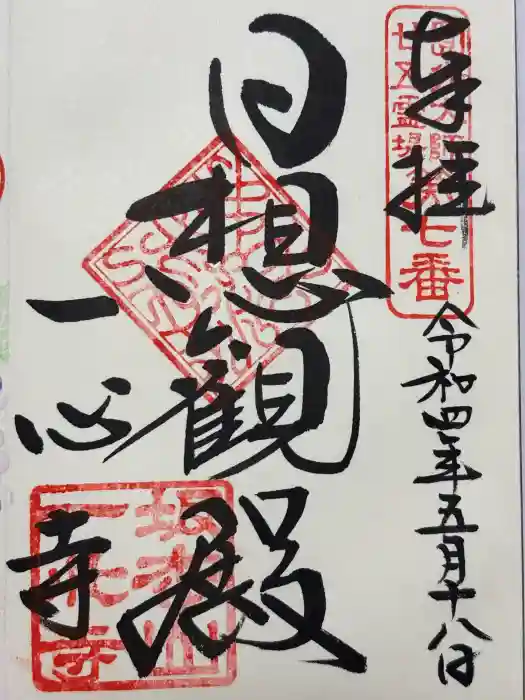 奉拝
圓光大師
廿五霊場第七番
令和四年五月十八日
日想観殿
一心寺
坂松山
一心寺